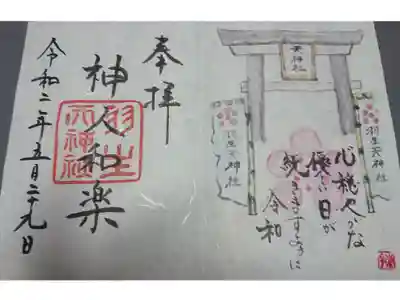 奉拝
神人和楽
羽生
天神社
令和二年五月二十九日
天神社
羽生天神社
羽生天神社
心穏やかな
優しい日が
続きますように
令和